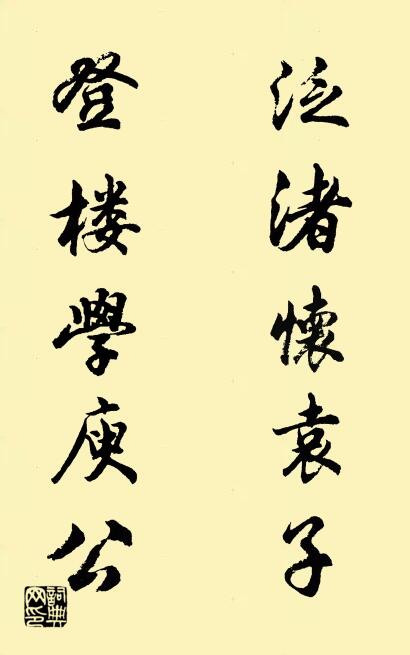 泛渚懷袁子
登楼學庾公
詞典网印